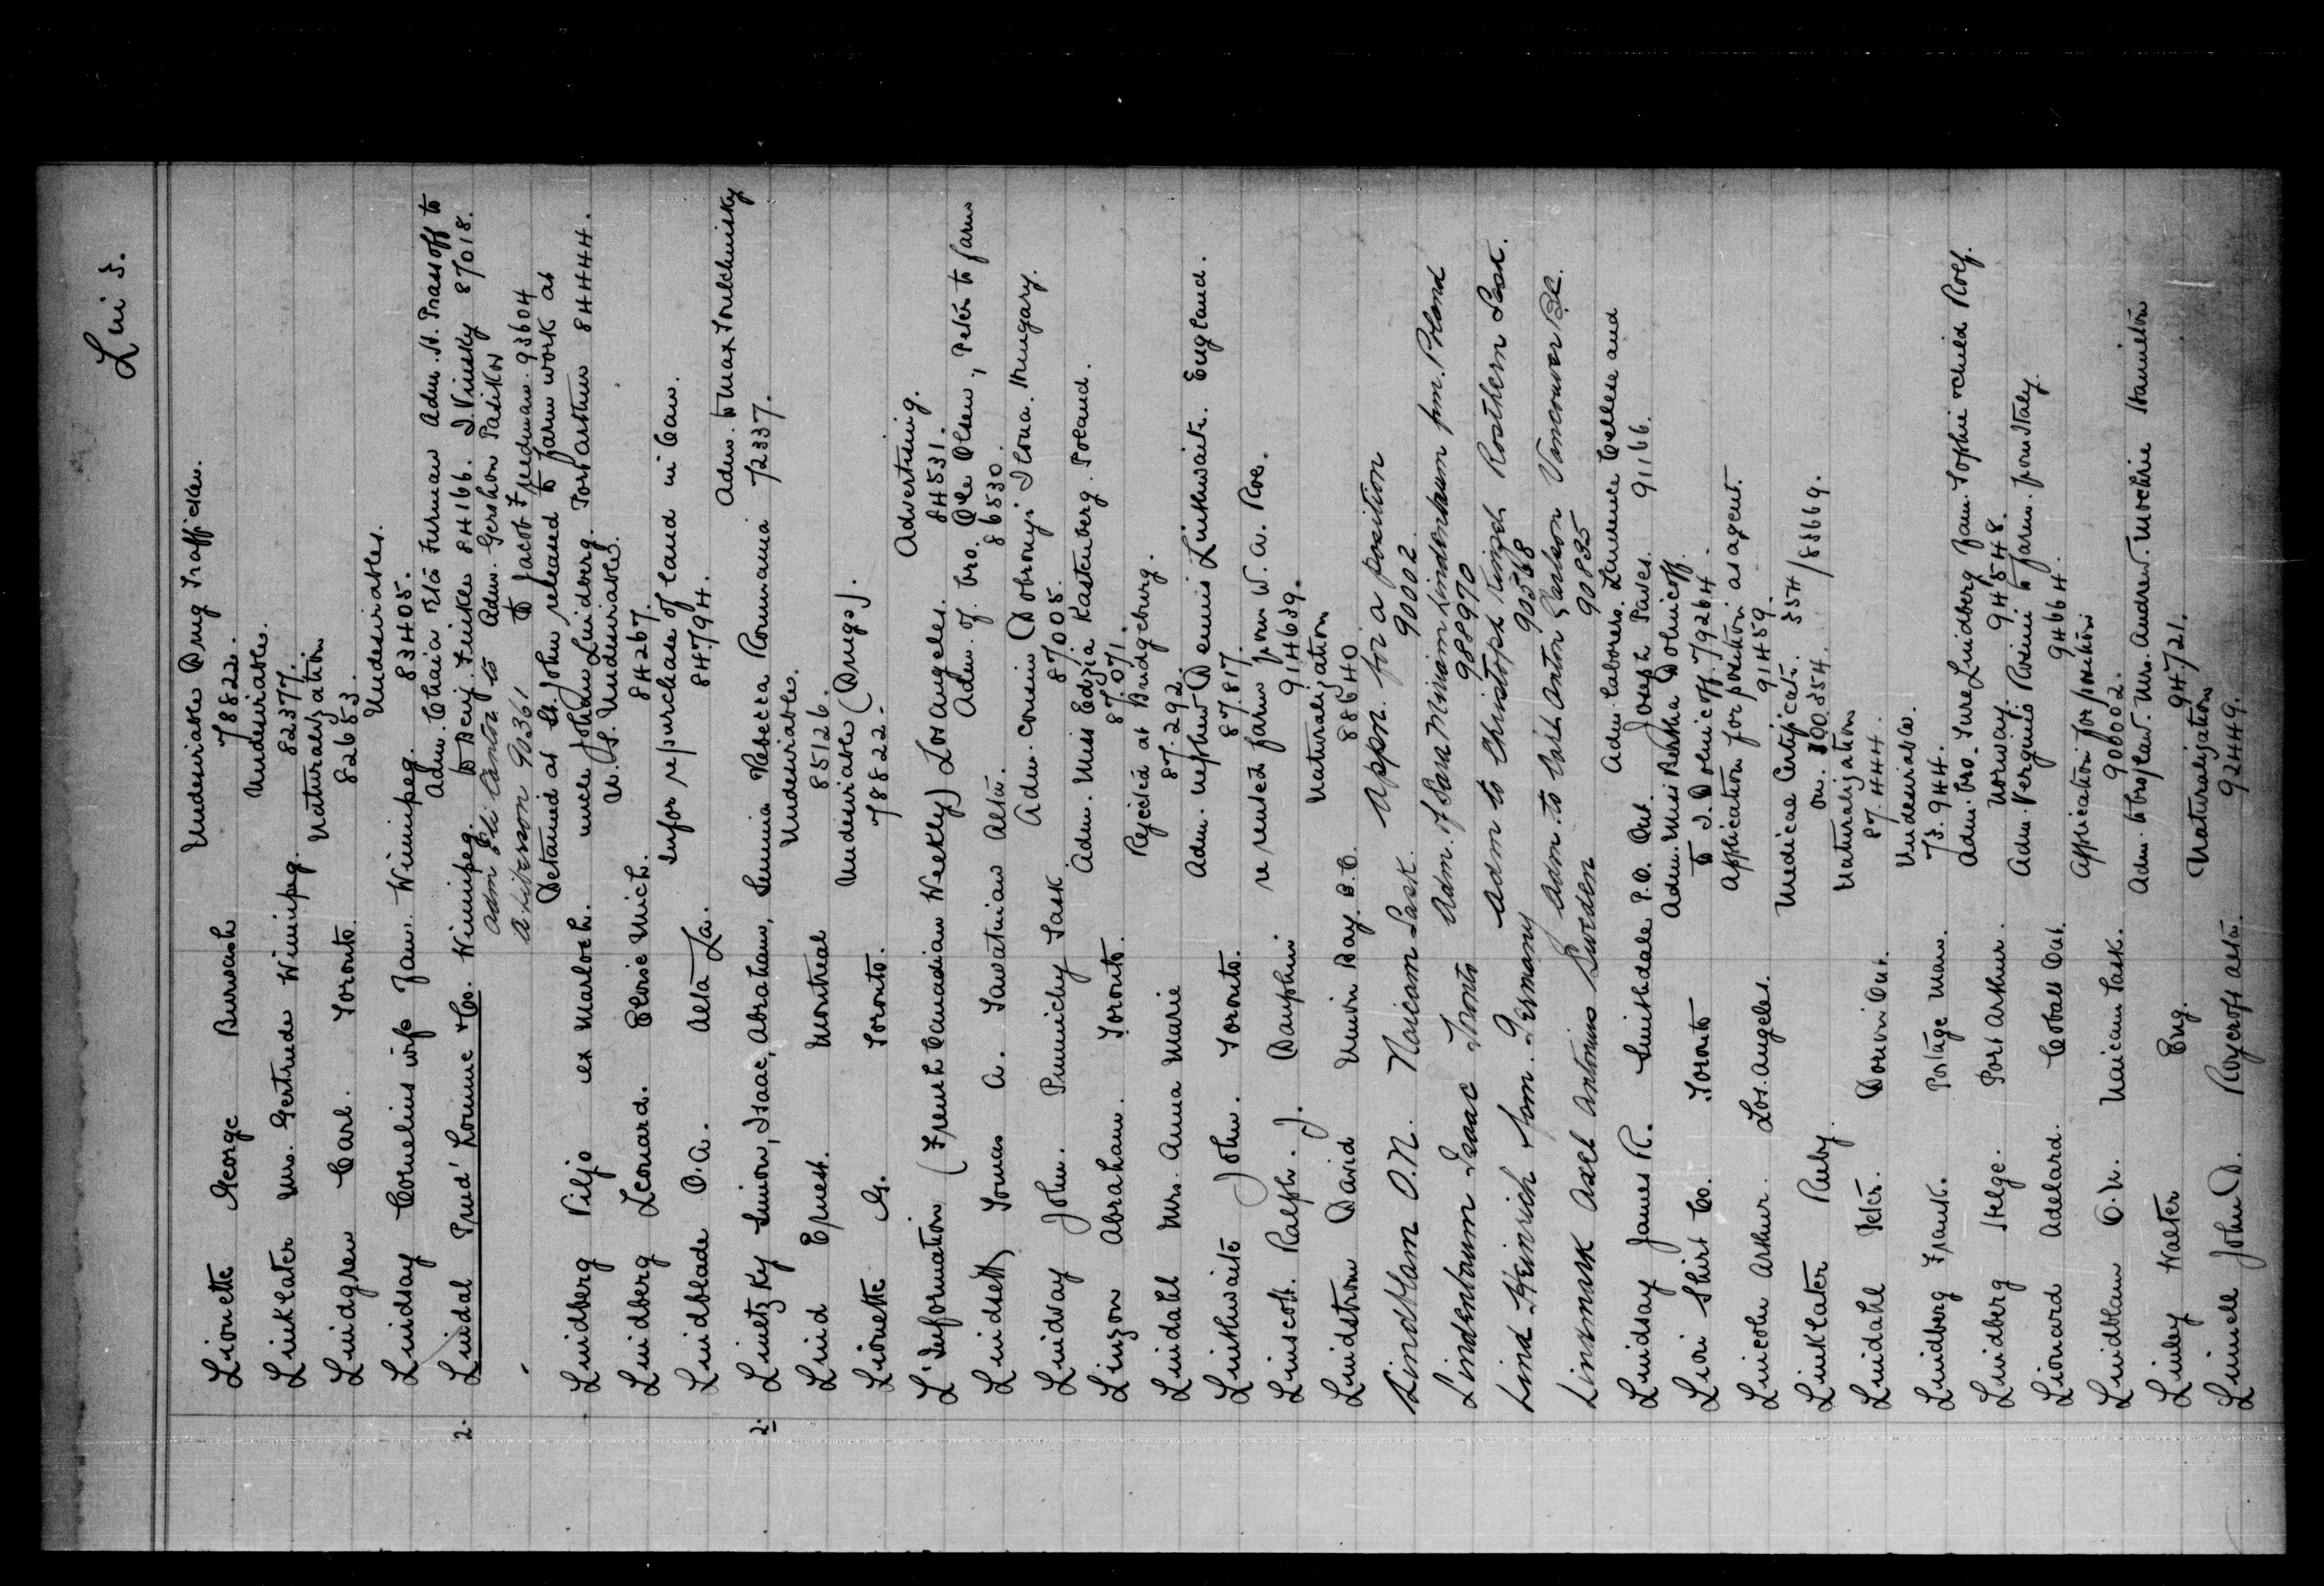 Lin 5.
Lionette George Burwash Undesirable Drug Trafficker.
78822.
Linklater Mrs. Gertrude Winnipeg. Undesirable.
82377.
Lindgren Carl. Toronto. Naturalization
82653.
Lindsay Cornelius wife Jan. Winnipeg. Undesirables.
83405.
2. Lindal Prud'homme & Co. Winnipeg. Adm. Chaia Etta Furman Adm. H. to
to Benj. Finkle 84166. I. Vinsky 87018.
Adm Eli Cantor to Adm. Gershon
A. Liberson 90361 to Jacob Freedman. 93604
Detained at St. John released to farm work at
Lindberg Viljo ex Marloch. uncle Johan Lindberg. Port Arthur 84444.
Lindberg Leonard. Eloise Mich. U.S. Undesirable.
84267.
Lindblade O.A. Alta La. Infor re purchase of land in Can.
84794.
2. Linetzky Simion, Isaac, Abraham, Sunia Rebecca Roumania Adm. to Max
72337.
Lind Ernest. Montreal Undesirable.
85126.
Lionette G. Toronto. Undesirable (Drugs).
78822.
L'Information (French Canadian Weekly) Los Angeles. Advertising.
84531.
Lindseth Tomas A. Alta. Adm. of bro. Ole Olsen, Peter to farm
86530.
Lindvay John. Punnichy Sask Adm. cousin Dobronyi Ilona. Hungary.
87005.
Linzon Abraham. Toronto. Adm. Miss Edzia Kastenberg. Poland.
87.071.
Lindahl Mrs. Anna Marie Rejected at Bridgeburg.
87.292.
Linthwaite John. Toronto. Adm. nephew Dennis Linthwaite. England.
87.817.
Linscott. Ralph. J. Dauphin re rented farm from W.A. Roe.
914639.
Lindstrom David Union Bay. B.C. Naturalization
88640
Lindblom O.N. Naicam Sask. Appn. for a position
90002
Lindenbaum Isaac Toronto Adm. of Sara Miriam Lindenbaum from Poland
988970
Lind Heinrich from Germany Adm to Christoph Rosthern Sask.
90568
Linnmark Axel Antonius Sweden Adm. to Carlson Vancouver B.C.
90835
Lindsay James R. Smithdale P.O. Ont. Adm. laborers. Laurence Cellee and
Joseph 91166.
Lion Shirt Co. Toronto Adm. Miss Bertha Dolnicoff
to I. Dolnicoff. 79264.
Lincoln Arthur. Los. Angeles. Application for position as agent.
91459.
Linklater Ruby. Medical Certificate. 554/83669.
on. 100354.
Lindahl Peter. Dorion Ont. Naturalization
87.444.
Lindberg Frank. Portage Man. Undesirable.
73.944.
Lindberg Helge. Port Arthur. Adm. bro. Ture Lindberg fam. Sophie & child Rolf.
Norway. 94548.
Lionard Adelard. Cobalt Ont. Adm. to farm. from Italy.
94664.
Lindblam O.N. Naicam Sask. Application for position
90002.
Linley Walter Eng. Adm. to bro/law. Mrs. Andrew. Hamilton
94721.
Linnell John D. Roycroft Alta. Naturalization
92449.